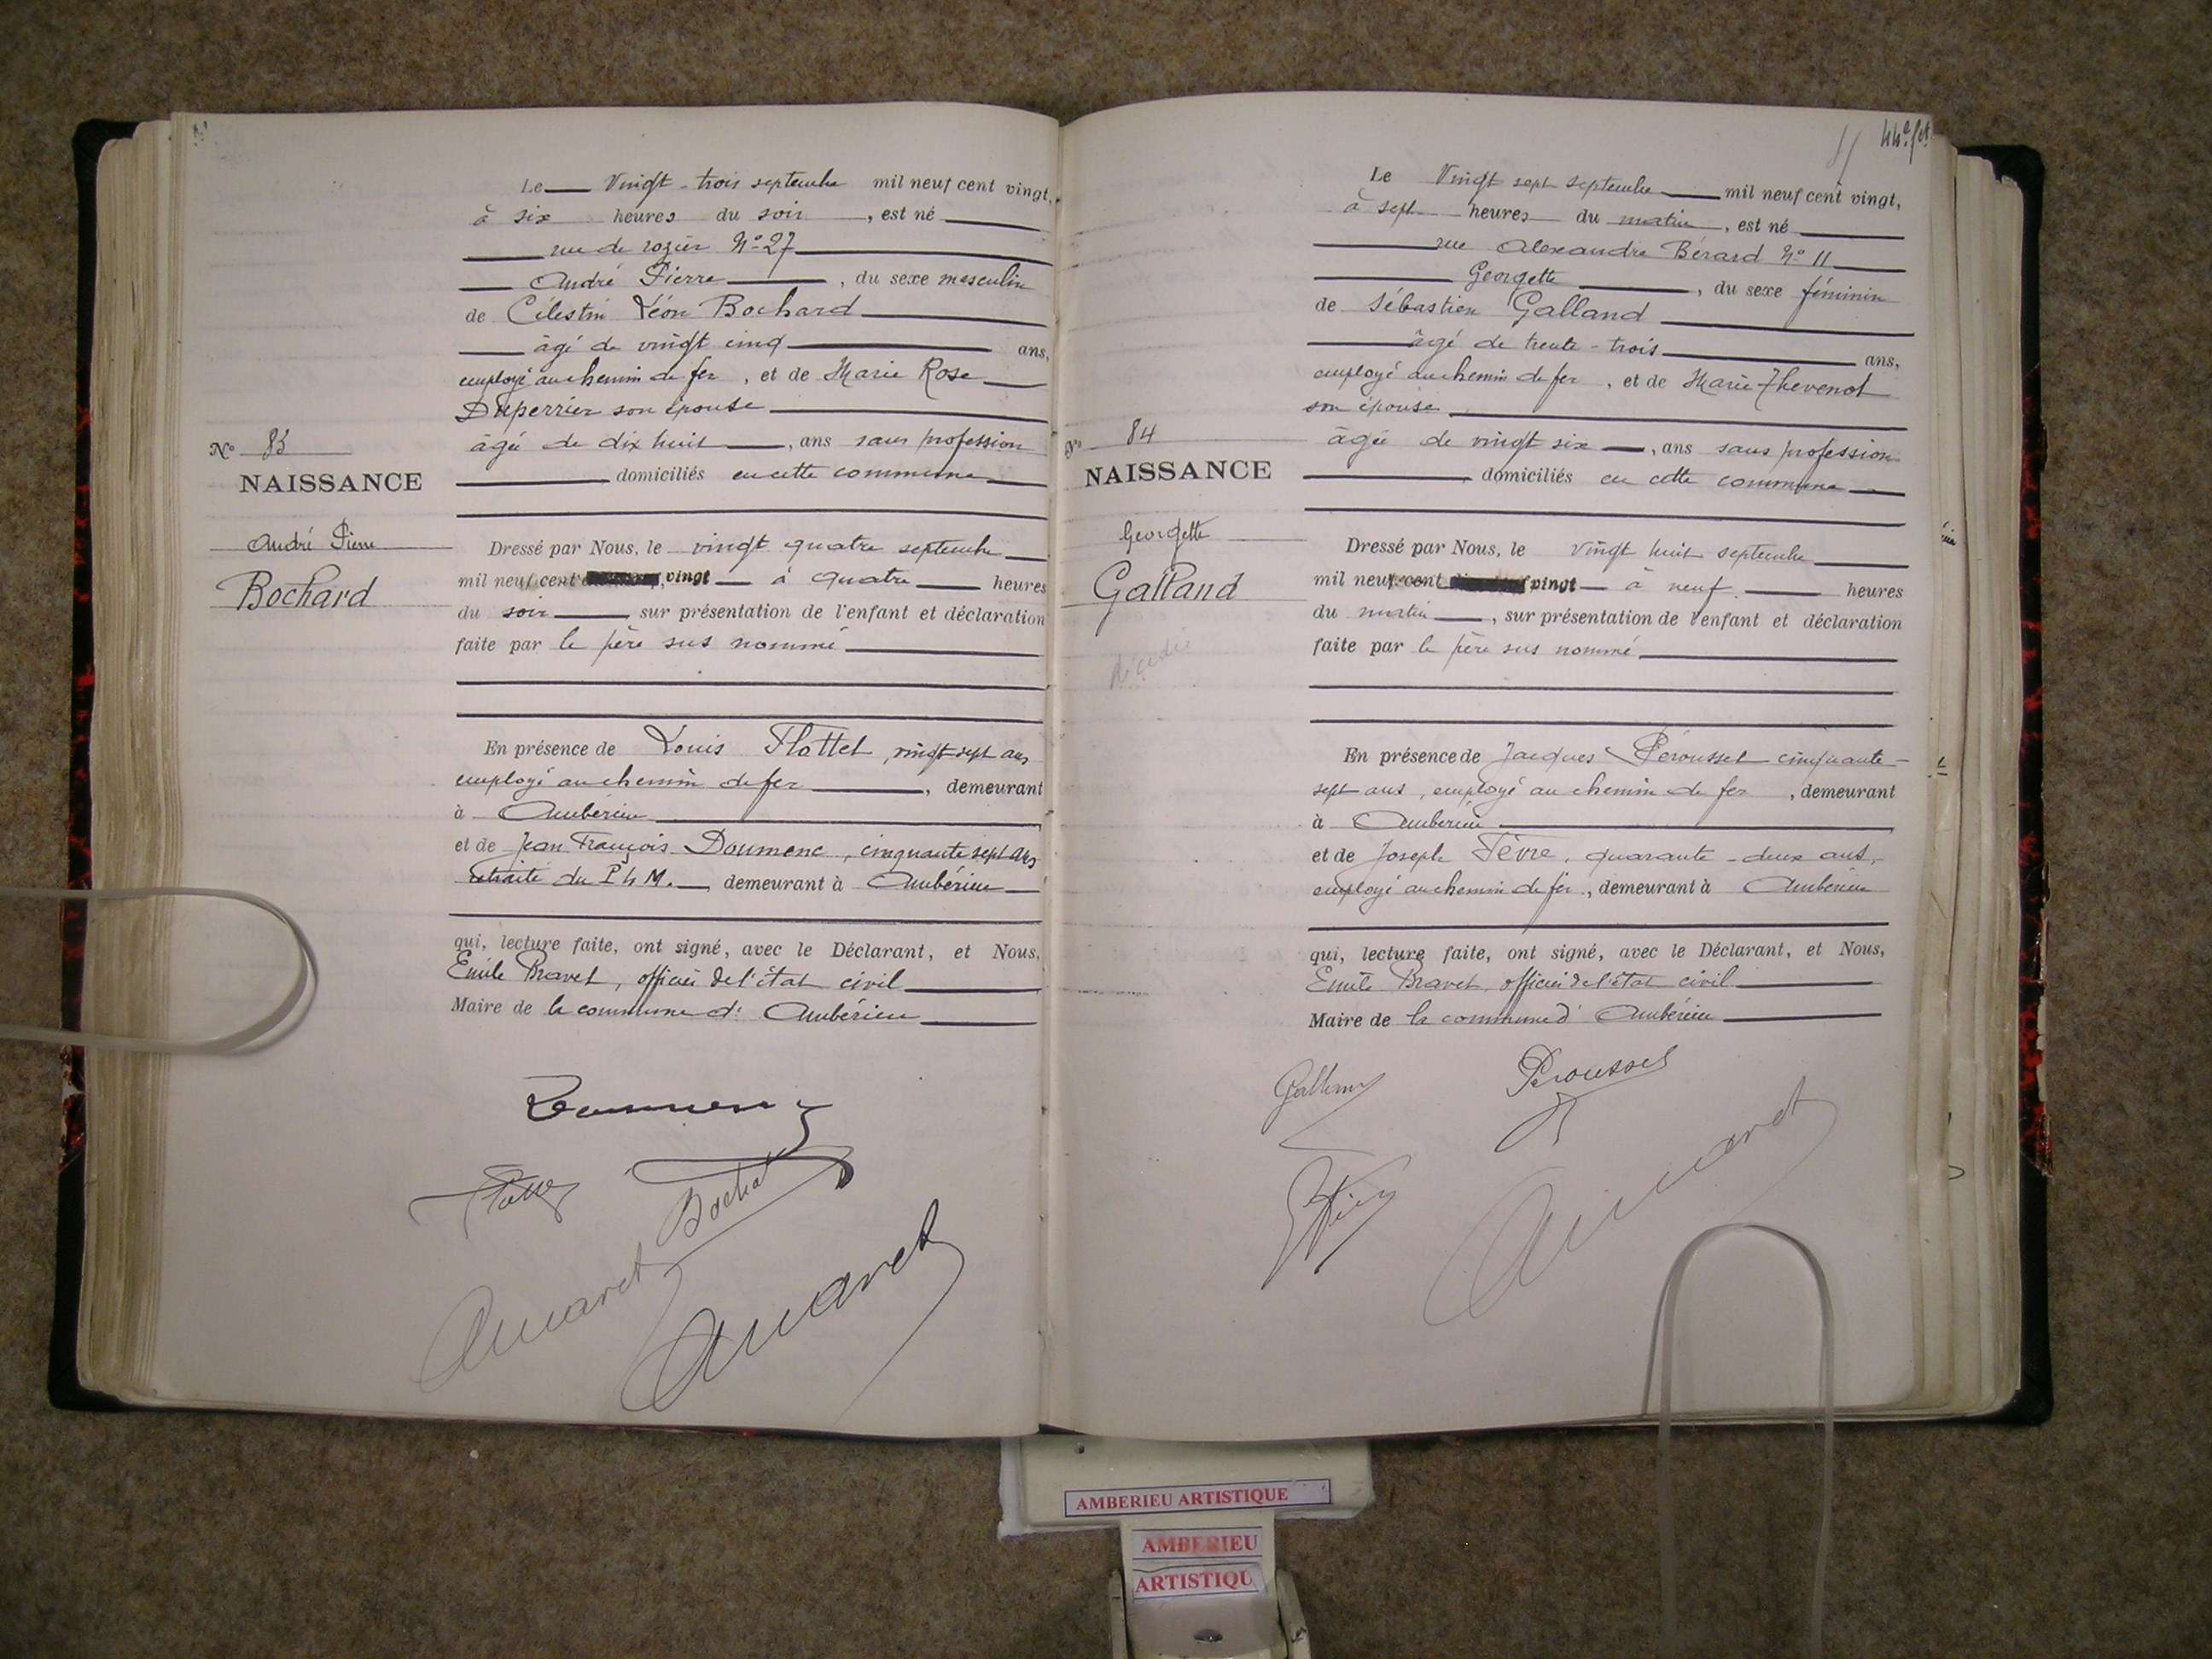 Le Vingt-trois septembre mil neuf cent vingt,
à six heures du soir, est né
rue de rozier N° 27
André Pierre, du sexe masculin
de Célestin Léon Bochard
âgé de vingt cinq ans,
employé au chemin de fer, et de Marie Rose
Duperrier son épouse
âgée de dix huit, ans sans profession
domiciliés en cette commune
N° 83
NAISSANCE
André Pierre
Bochard
Dressé par Nous, le vingt quatre septembre
mil neuf cent vingt à quatre heures
du soir sur présentation de l'enfant et déclaration
faite par le père sus nommé
En présence de Louis Flottet, vingt sept ans
employé au chemin de fer, demeurant
à Ambérieu
et de Jean François Doumenc, cinquante sept ans
retraité du P L M., demeurant à Ambérieu
qui, lecture faite, ont signé, avec le Déclarant, et Nous,
Emile Bravet, officier de l'état civil
Maire de la commune d' Ambérieu
Bochard
44e fet
Le Vingt sept septembre mil neuf cent vingt,
à sept heures du matin, est né
rue Alexandre Bérard N° 11
Georgette, du sexe féminin
de Sébastien Galland
âgé de trente-trois ans,
employé au chemin de fer, et de Marie Thevenot
son épouse
âgée de vingt six, ans sans profession
domiciliés en cette commune
N° 84
NAISSANCE
Georgette
Galland
décédée
Dressé par Nous, le vingt huit septembre
mil neuf cent vingt à neuf heures
du matin, sur présentation de l'enfant et déclaration
faite par le père sus nommé
En présence de Jacques Pérousset cinquante-
sept ans, employé au chemin de fer, demeurant
à Ambérieu
et de Joseph Fèvre, quarante-deux ans,
employé au chemin de fer, demeurant à Ambérieu
qui, lecture faite, ont signé, avec le Déclarant, et Nous,
Emile Bravet, officier de l'état civil
Maire de la commune d' Ambérieu
Galland
Perousset
AMBERIEU ARTISTIQUE
AMBERIEU
ARTISTIQU